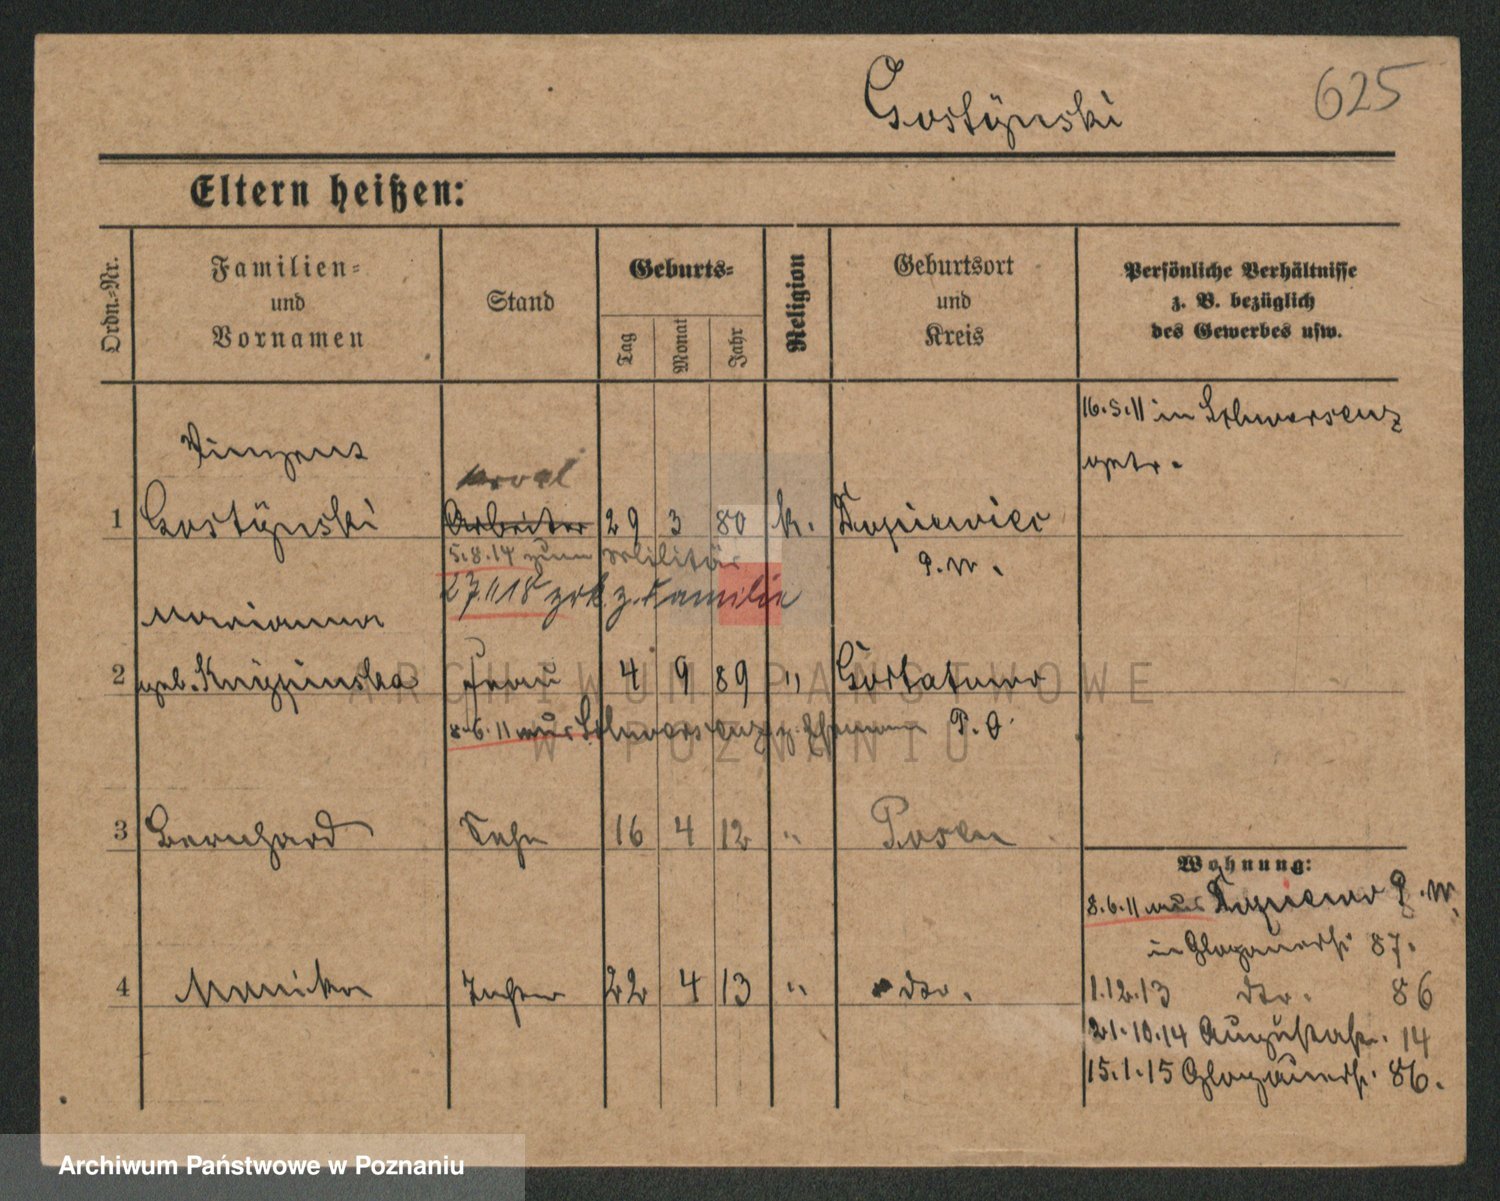 Gostÿnski
625
Eltern heißen:
Ordn.-Nr.
Familien-
und
Vornamen
Stand
Geburts-
Tag
Monat
Jahr
Religion
Geburtsort
und
Kreis
Persönliche Verhältnisse
z. B. bezüglich
des Gewerbes usw.
16.5.11 in Schwersenz
getr.
Vinzens
1 Gostÿnski Arbeiter 29 3 80 k. Dopiewiec
P. W.
5.8.14 zum Militär
27.11.18 zrk. z. Familie
Marianna
2 geb. Frau 4 9 89 " Gortatowo
8.6.11 aus Schwersenz z. Ehemann P. O.
3 Bernhard Sohn 16 4 12 " Posen
4 Monika Tochter 22 4 13 " dto.
Wohnung:
8.6.11 aus Dopiewo P. W.
in Glogauerstr. 87.
1.12.13 dto. 86
21.10.14 Augustastr. 14
15.1.15 Glogauerstr. 86.
ARCHIWUM PAŃSTWOWE
W POZNANIU
Archiwum Państwowe w Poznaniu